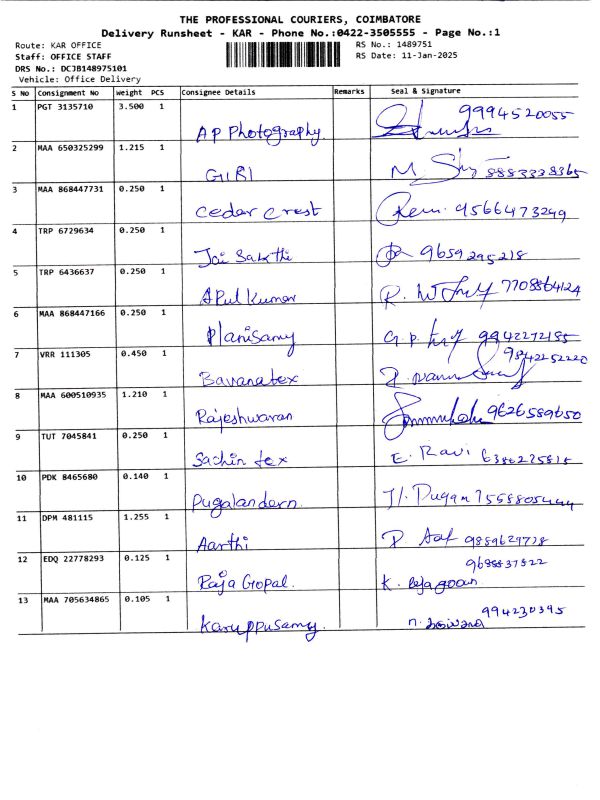 THE PROFESSIONAL COURIERS, COIMBATORE
Delivery Runsheet - KAR - Phone No.:0422-3505555 - Page No.:1
Route: KAR OFFICE RS No.: 1489751
Staff: OFFICE STAFF RS Date: 11-Jan-2025
DRS No.: DCJB148975101
Vehicle: Office Delivery
S No Consignment No Weight PCS Consignee Details Remarks Seal & Signature
1 PGT 3135710 3.500 1 AP Photography 9994520055
2 MAA 650325299 1.215 1 GIRI M.
3 MAA 868447731 0.250 1 cedar crest 9566473249
4 TRP 6729634 0.250 1 Jai Sakthi 9659295218
5 TRP 6436637 0.250 1 APul Kumar R. 7708864124
6 MAA 868447166 0.250 1 Planisamy G.P. 9942272185
7 VRR 111305 0.450 1 Bavanatex 9842252220
8 MAA 600510935 1.210 1 Rajeshwaran 9626589650
9 TUT 7045841 0.250 1 Sachin tex E. Ravi 6386275815
10 PDK 8465680 0.140 1 Pugalandern
11 DPM 481115 1.255 1 Aarthi
12 EDQ 22778293 0.125 1 Raja Gopal. K.
13 MAA 705634865 0.105 1 Karuppusamy. 994230395